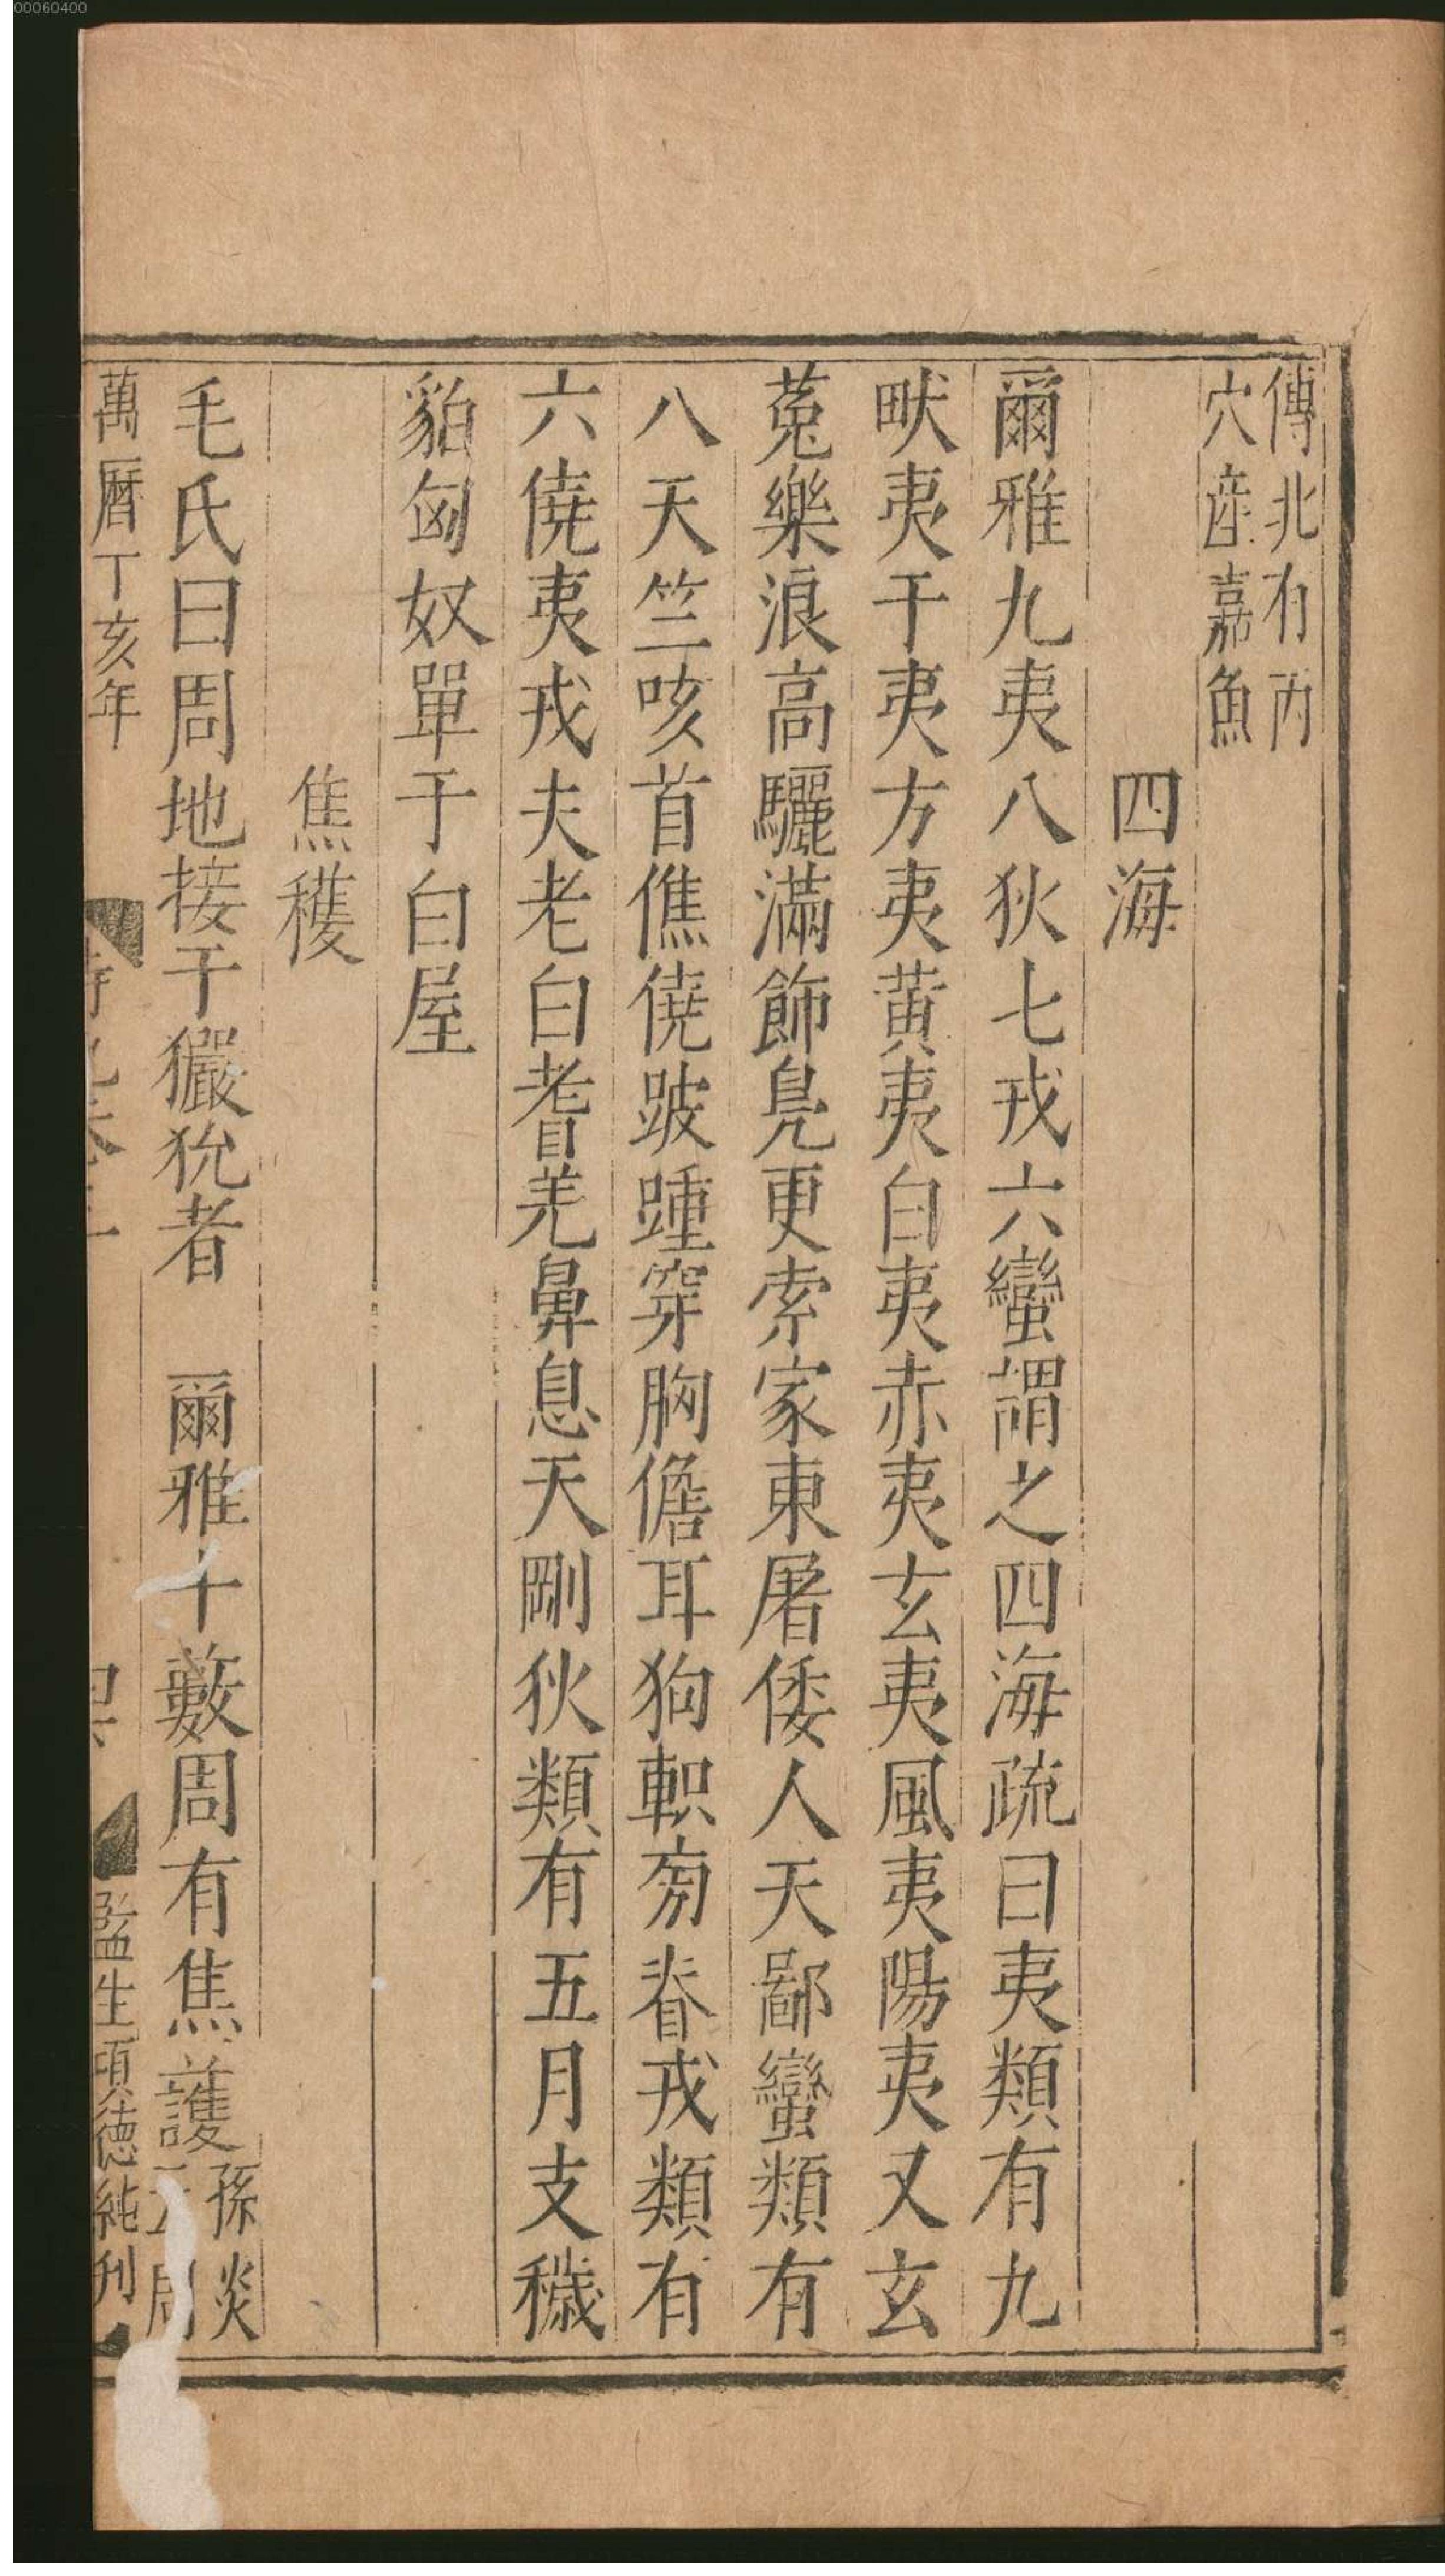 傳北有丙
穴産嘉魚
四海
爾雅九夷八狄七戎六蠻謂之四海疏曰夷類有九
畎夷于夷方夷黃夷白夷赤夷玄夷風夷陽夷又玄
菟樂浪高驪滿飾鳧更索家東屠倭人天鄙蠻類有
八天竺咳首僬僥跛踵穿胸儋耳狗軹旁脊戎類有
六僥夷戎夫老白耆羌鼻息天剛狄類有五月支穢
貊匈奴單于白屋
焦穫
毛氏曰周地接于玁狁者 爾雅十藪周有焦護
孫炎
周
萬曆丁亥年
監生項德純刊
00060400